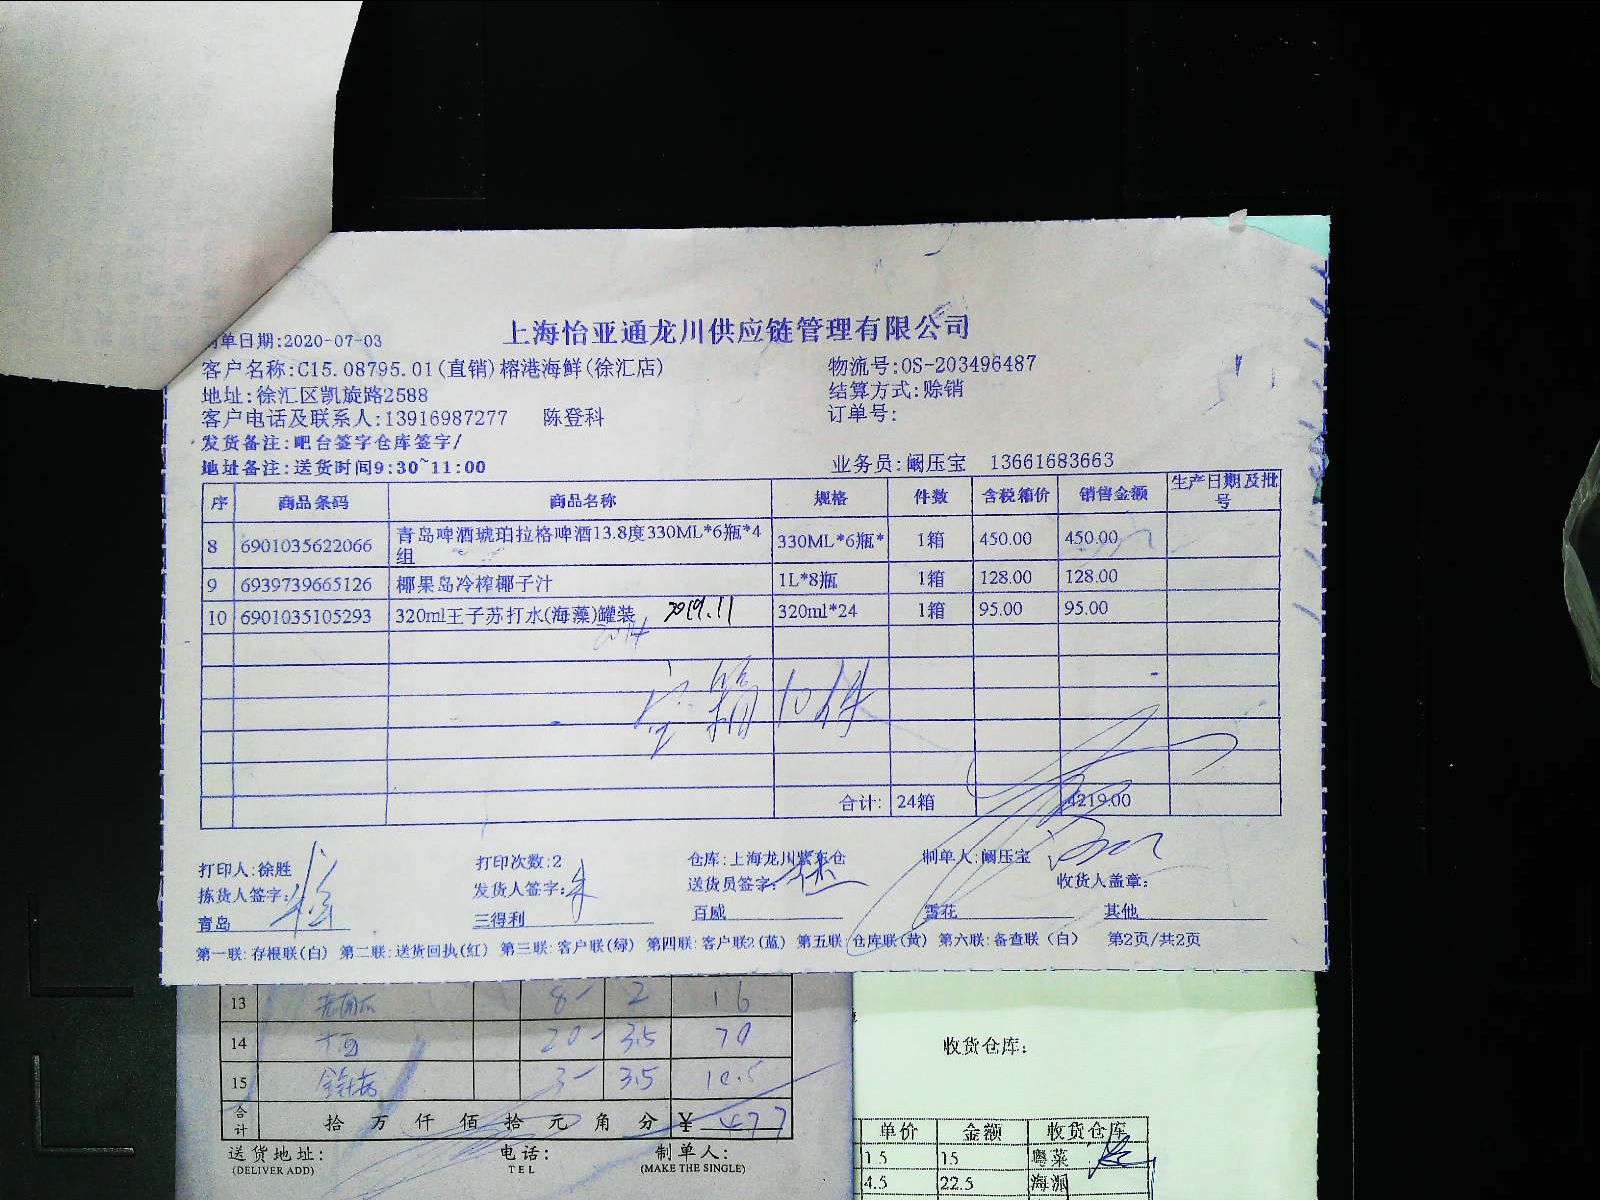 上海怡亚通龙川供应链管理有限公司
制单日期:2020-07-03
客户名称:C15.08795.01(直销)榕港海鲜(徐汇店) 物流号:OS-203496487
地址:徐汇区凯旋路2588 结算方式:赊销
客户电话及联系人:13916987277 陈登科 订单号:
发货备注:吧台签字仓库签字/
地址备注:送货时间9:30~11:00 业务员:阚压宝 13661683663
序 商品条码 商品名称 规格 件数 含税箱价 销售金额 生产日期及批号
8 6901035622066 青岛啤酒琥珀拉格啤酒13.8度330ML*6瓶*4组 330ML*6瓶* 1箱 450.00 450.00
9 6939739665126 椰果岛冷榨椰子汁 1L*8瓶 1箱 128.00 128.00
10 6901035105293 320ml王子苏打水(海藻)罐装 2019.11 320ml*24 1箱 95.00 95.00
空箱10件
合计: 24箱 4219.00
打印人:徐胜 打印次数:2 仓库:上海龙川紫东仓 制单人:阚压宝
拣货人签字: 发货人签字: 送货员签字: 收货人盖章:
青岛 三得利 百威 雪花 其他
第一联:存根联(白) 第二联:送货回执(红) 第三联:客户联(绿) 第四联:客户联2(蓝) 第五联:仓库联(黄) 第六联:备查联(白) 第2页/共2页
13 8 2 16
14 20 3.5 70
15 3 3.5 10.5
合计 拾 万 仟 佰 拾 元 角 分 ¥ 477
送货地址: 电话: 制单人:
(DELIVER ADD) TEL (MAKE THE SINGLE)
收货仓库:
单价 金额 收货仓库
1.5 15 粤菜
4.5 22.5 海派